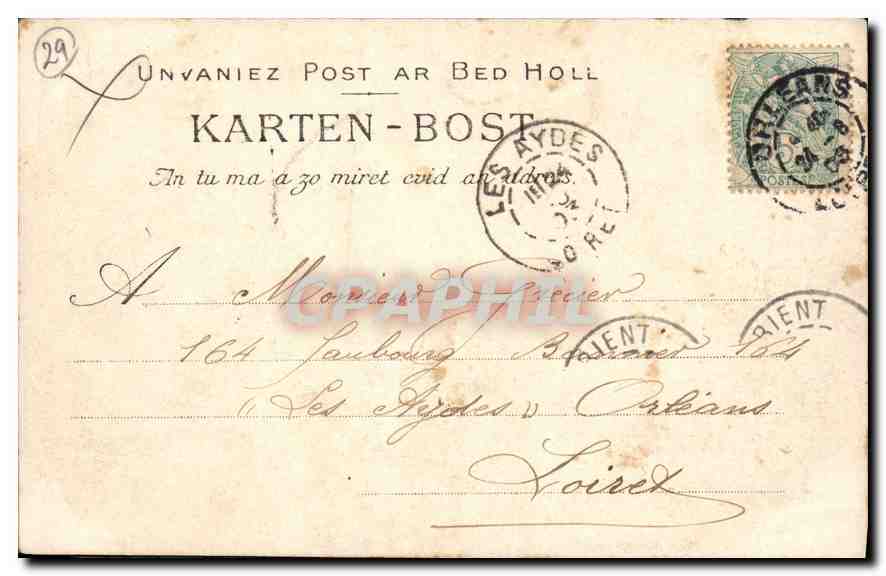 29
UNVANIEZ POST AR BED HOLL
KARTEN-BOST
An tu ma a zo miret evid an adres.
LES AYDES
LOIRET
ORLEANS
POSTES
A Monsieur Grenier
164 Faubourg Bannier 164
« Les Aydes » Orléans
Loiret
RIENT
RIENT
CPAPHIL